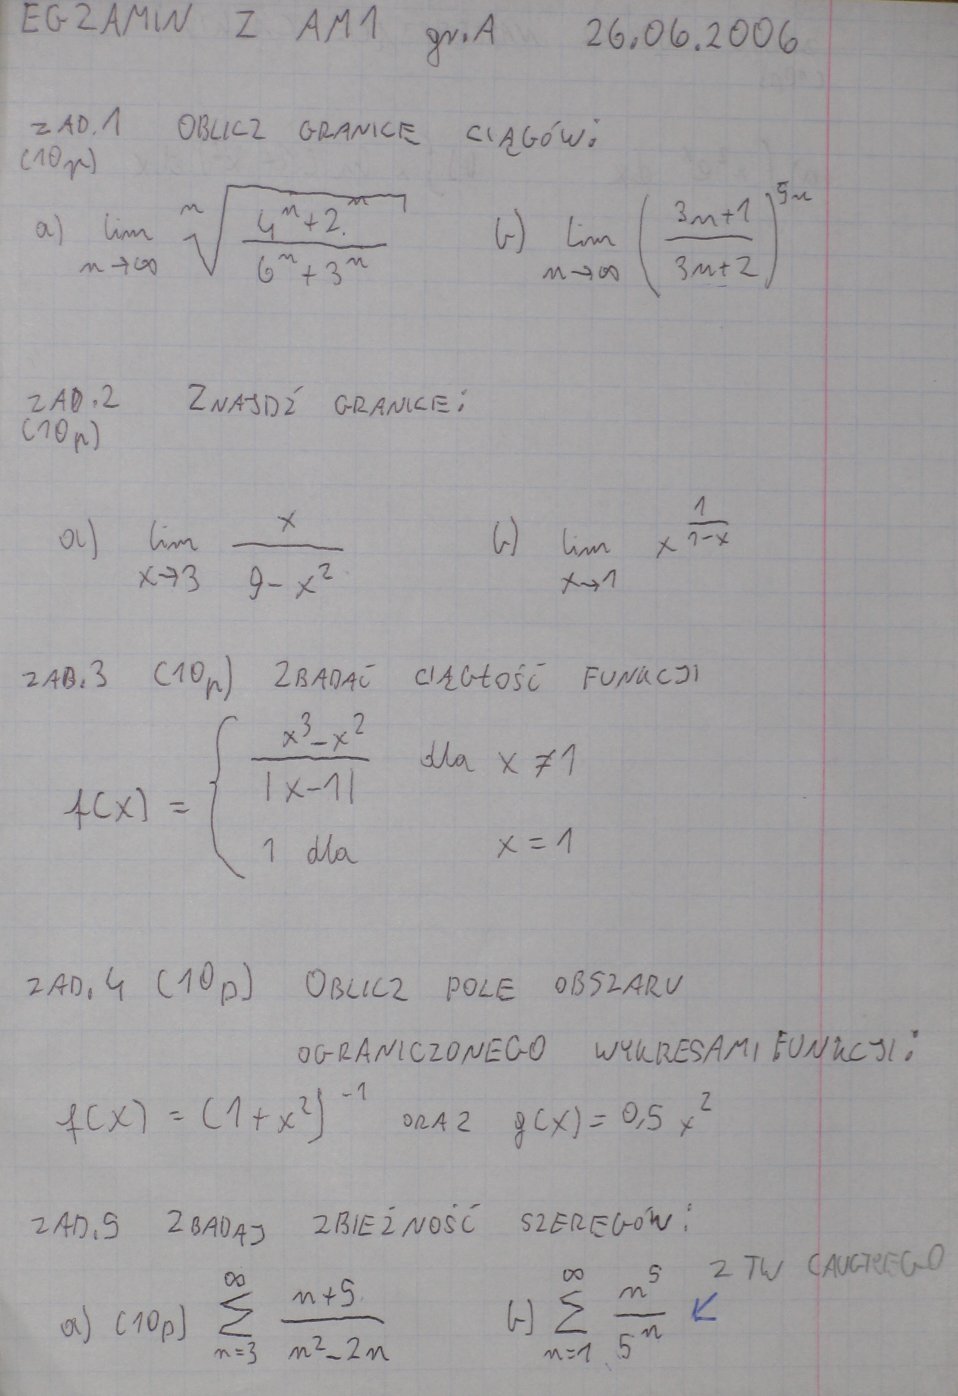 EGZAMIN Z AM1 gr.A 26.06.2006
ZAD.1 OBLICZ GRANICE CIĄGÓW:
(10p)
a) lim n→∞ ⁿ√((4ⁿ+2ⁿ)/(6ⁿ+3ⁿ)) b) lim n→∞ ((3n+1)/(3n+2))^5n
ZAD.2 ZNAJDŹ GRANICE:
(10p)
a) lim x→3 x/(9-x²) b) lim x→1 x^(1/(1-x))
ZAD.3 (10p) ZBADAĆ CIĄGŁOŚĆ FUNKCJI
f(x) = { (x³-x²)/|x-1| dla x≠1
1 dla x=1
ZAD.4 (10p) OBLICZ POLE OBSZARU
OGRANICZONEGO WYKRESAMI FUNKCJI:
f(x) = (1+x²)⁻¹ ORAZ g(x) = 0,5 x²
ZAD.5 ZBADAJ ZBIEŻNOŚĆ SZEREGÓW:
Z TW CAUCHEGO
a) (10p) ∞ Σ n=3 (n+5)/(n²-2n) b) ∞ Σ n=1 n⁵/5ⁿ ↙